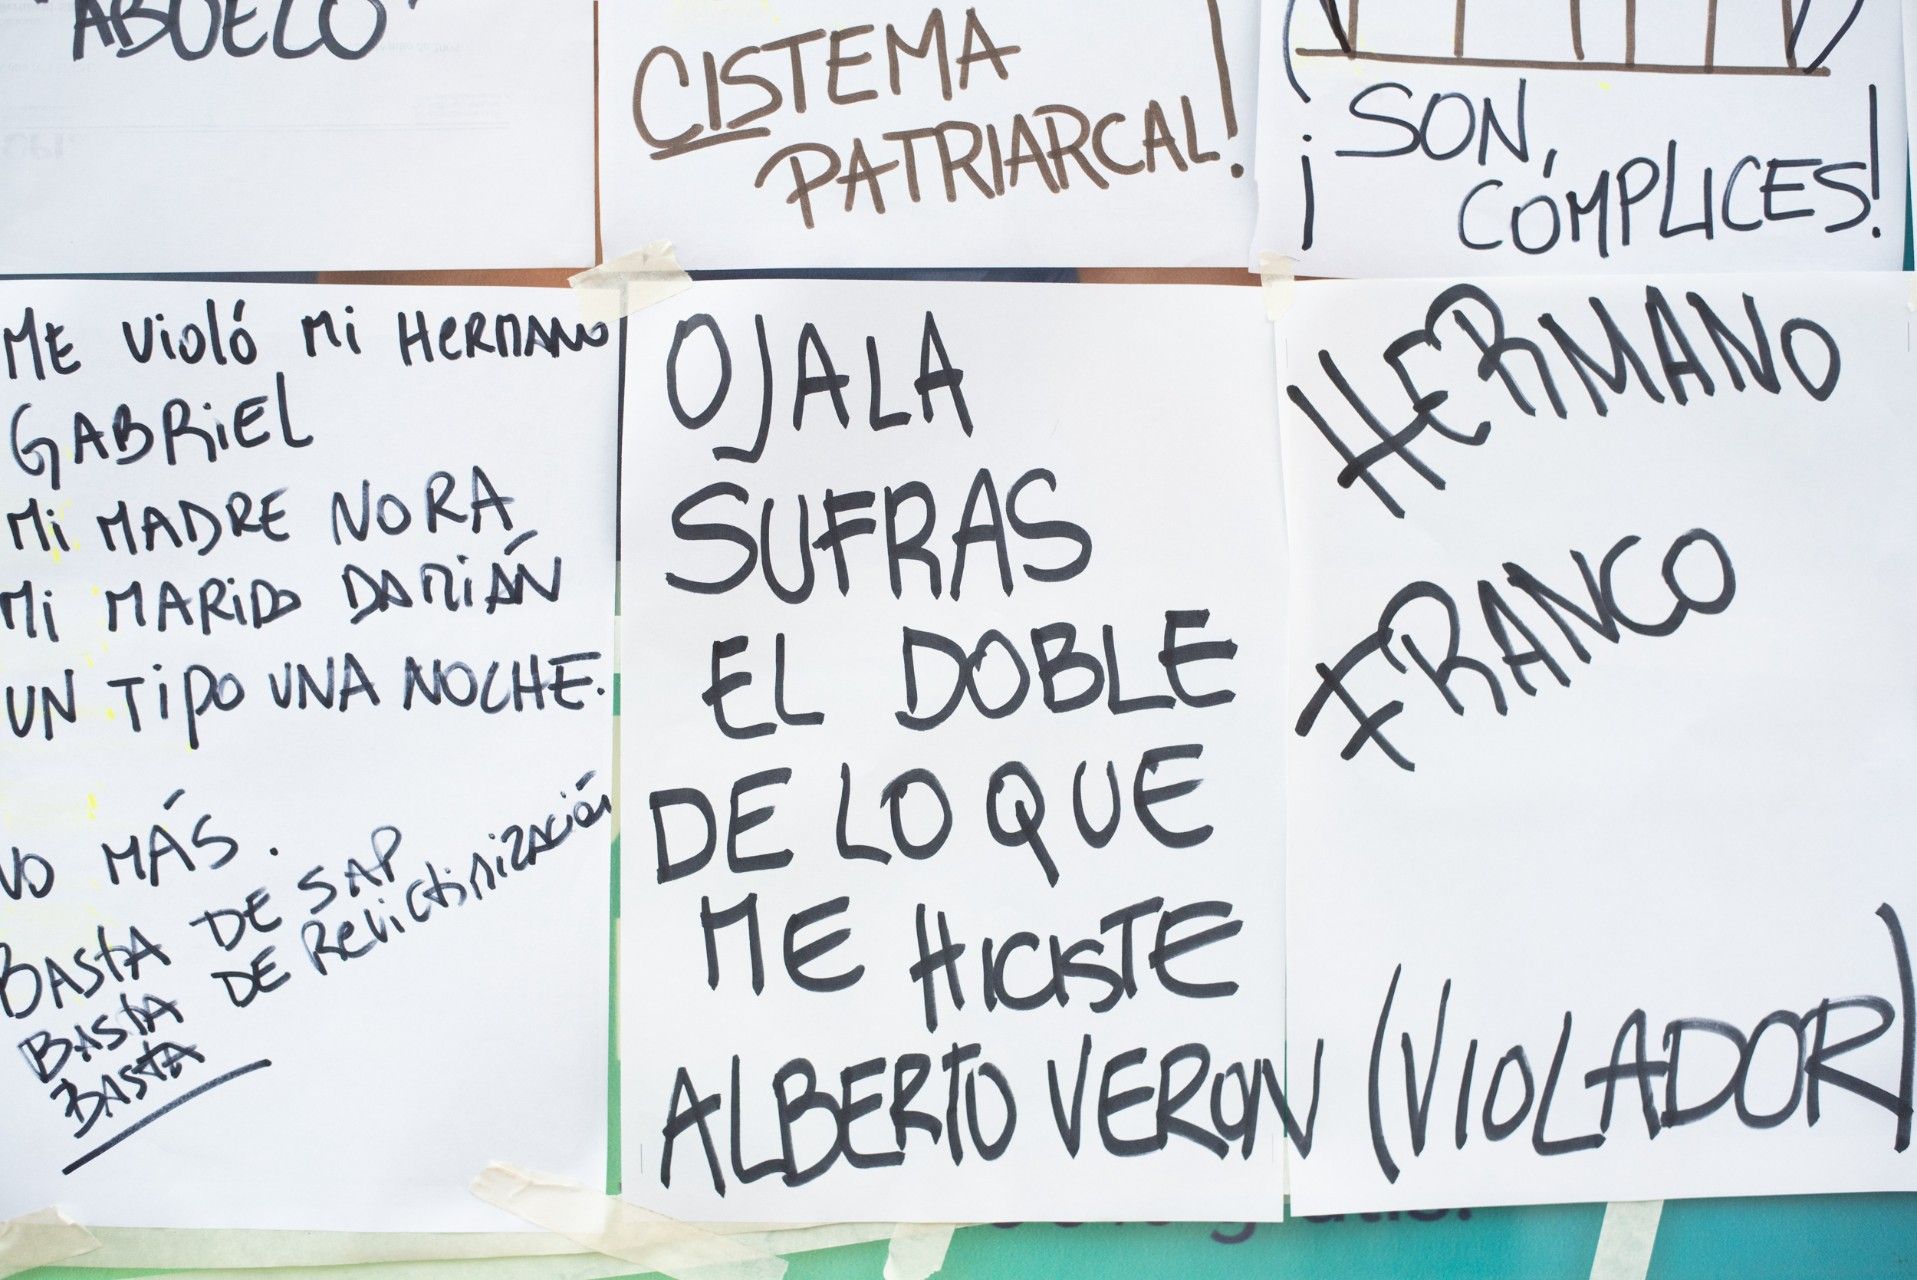 "ABUELO"
CISTEMA
PATRIARCAL!
¡SON
CÓMPLICES!
ME Violó Mi HERMANO
GABRiEL
Mi MADRE NORA
Mi MARiDO DAMiÁN
UN TiPO UNA NOCHE.
NO MÁS.
BASTA DE SAP
BASTA DE REVictiMiZACión
BASTA
OJALA
SUFRAS
EL DOBLE
DE LO QUE
ME HICISTE
ALBERTO VERON (VIOLADOR)
HERMANO
FRANCO